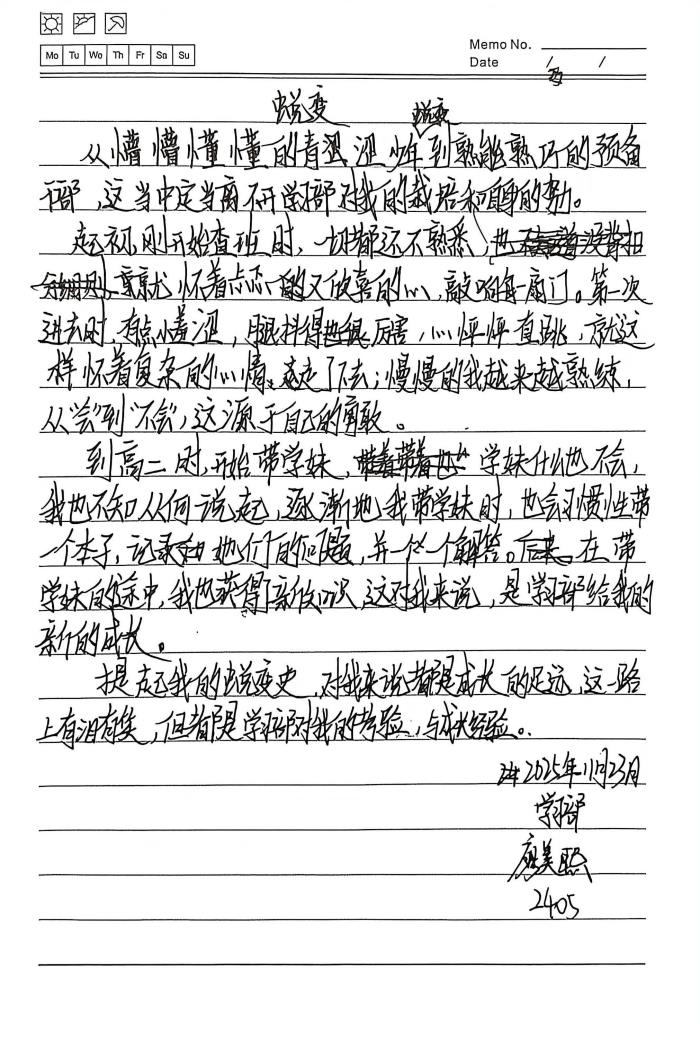 Mo Tu We Th Fr Sa Su
Memo No.
Date / /
蜕变
蜕变
从懵懵懂懂的青涩涩少年到熟能熟巧的预备
干部，这当中定当离不开学习部对我的栽培和自身的努力。
起初，刚开始查班时，一切都还不熟悉，也
就怀着忐忑的又欣喜的心，敲响每一扇门。第一次
进去时，有点小羞涩，腿抖得也很厉害，心怦怦直跳，就这
样怀着复杂的心情，走了下去；慢慢的我越来越熟练，
从“会”到“不会”，这源于自己的勇敢。
到高二时，开始带学妹，学妹什么也不会，
我也不知从何说起，逐渐地我带学妹时，也会习惯性带
一个本子，记录她们的问题，并一个个解答。后来在带
学妹的途中，我也获得新的知识，这对我来说，是学习部给我的
新的成长。
提起我的蜕变史，对我来说都是成长的足迹，这一路
上有泪有笑，但都是学习部对我的考验，与成长经验。
2025年11月23月
学习部
廖美熙
2405